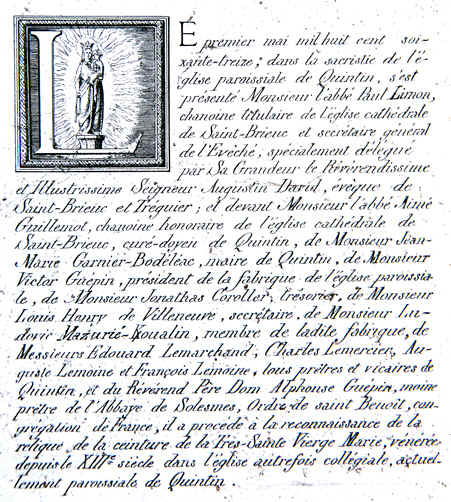 LE premier mai mil huit cent soi-
xante-treize; dans la sacristie de l'é-
glise paroissiale de Quintin, s'est
présenté Monsieur l'abbé Paul Limon,
chanoine titulaire de l'église cathédrale
de Saint-Brieuc et secrétaire général
de l'Evêché, spécialement délégué
par Sa Grandeur le Révérendissime
et Illustrissime Seigneur Augustin David, évêque de
Saint-Brieuc et Tréguier; et devant Monsieur l'abbé Aimé
Guillemot, chanoine honoraire de l'église cathédrale de
Saint-Brieuc, curé-doyen de Quintin, de Monsieur Jean-
Marie Garnier-Bodéléac, maire de Quintin, de Monsieur
Victor Guépin, président de la fabrique de l'église paroissia-
le, de Monsieur Jonathas Coroller, trésorier, de Monsieur
Louis Henry de Villeneuve, secrétaire, de Monsieur Lu-
dovic Mazurié-Koualin, membre de ladite fabrique, de
Messieurs Edouard Lemarchand, Charles Lemercier, Au-
guste Lemoine et François Lemoine, tous prêtres et vicaires de
Quintin, et du Révérend Père Dom Alphonse Guépin, moine
prêtre de l'Abbaye de Solesmes, Ordre de saint Benoît, con-
grégation de France, il a procédé à la reconnaissance de la
rélique de la ceinture de la Très-Sainte Vierge Marie, vénérée
depuis le XIIIe siècle dans l'église autrefois collégiale, actuel-
lement paroissiale de Quintin.